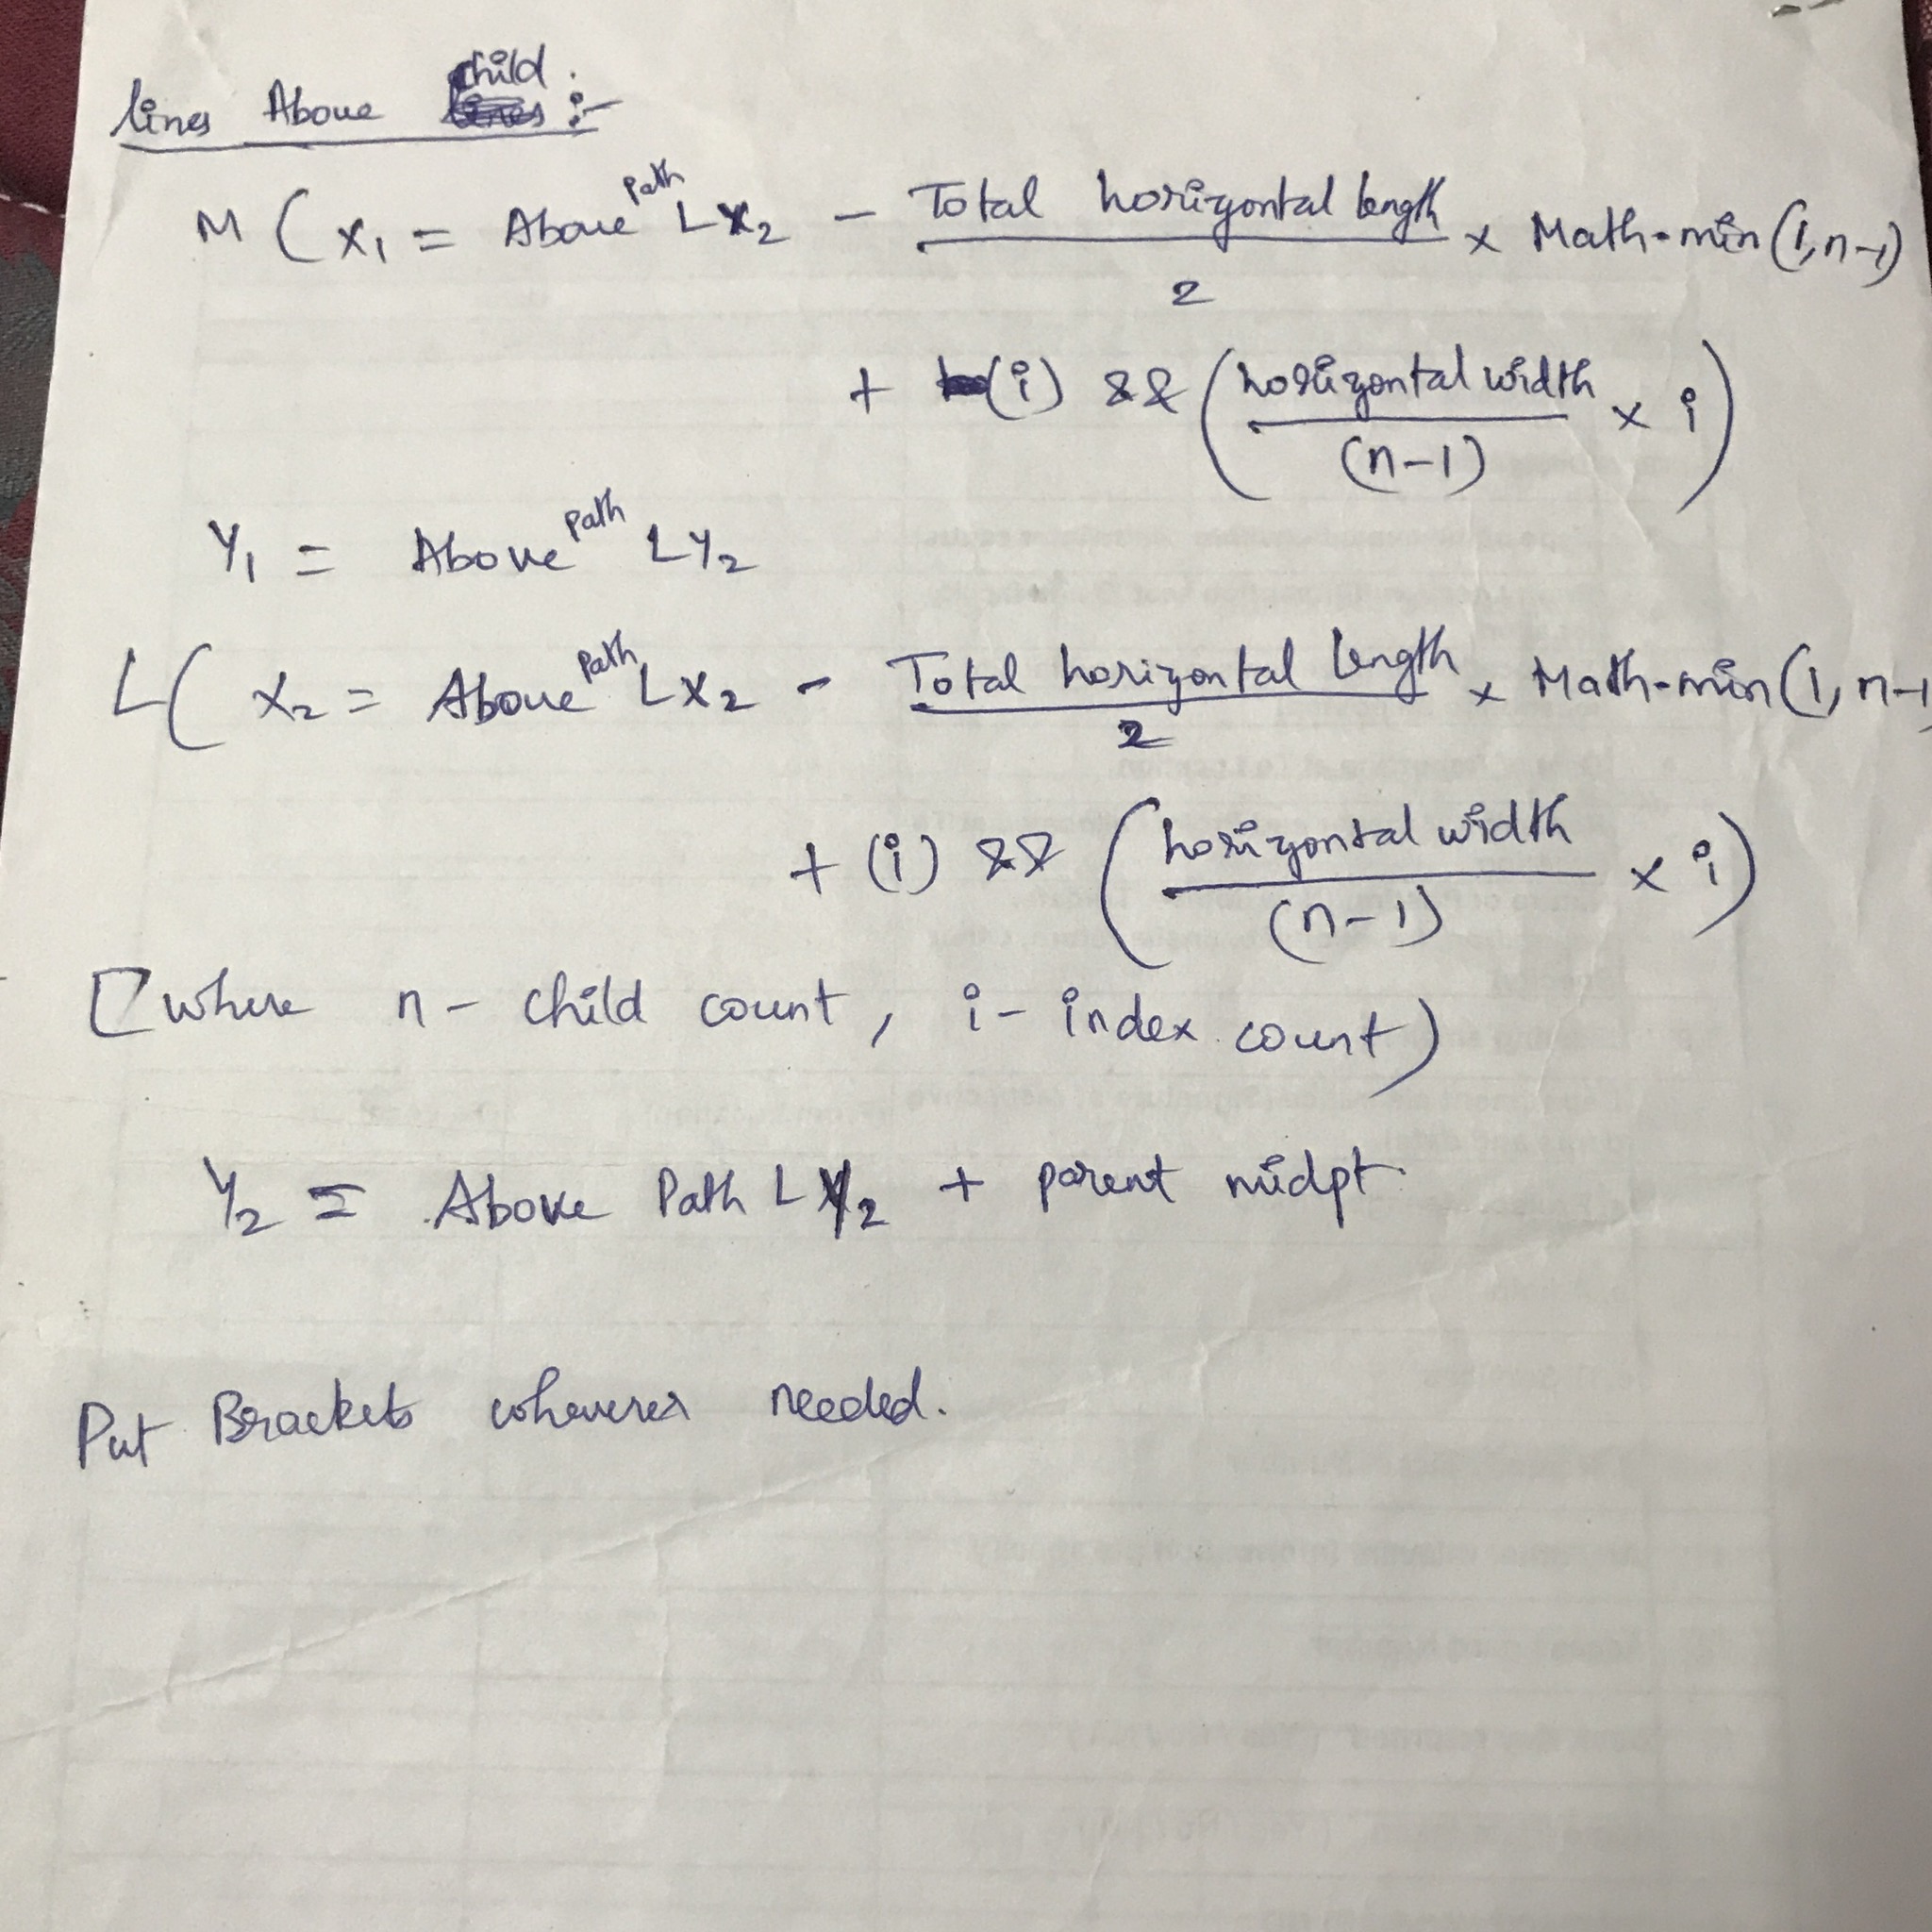 lines Above child :-
M ( x₁ = Above path L x₂ - Total horizontal length / 2 × Math.min(1, n-1)
+ (i) && ( horizontal width / (n-1) × i )
Y₁ = Above path L Y₂
L ( x₂ = Above path L x₂ - Total horizontal length / 2 × Math.min(1, n-1
+ (i) && ( horizontal width / (n-1) × i )
[ where n - child count , i - index count )
Y₂ = Above Path L Y₂ + parent midpt.
Put Brackets wherever needed.